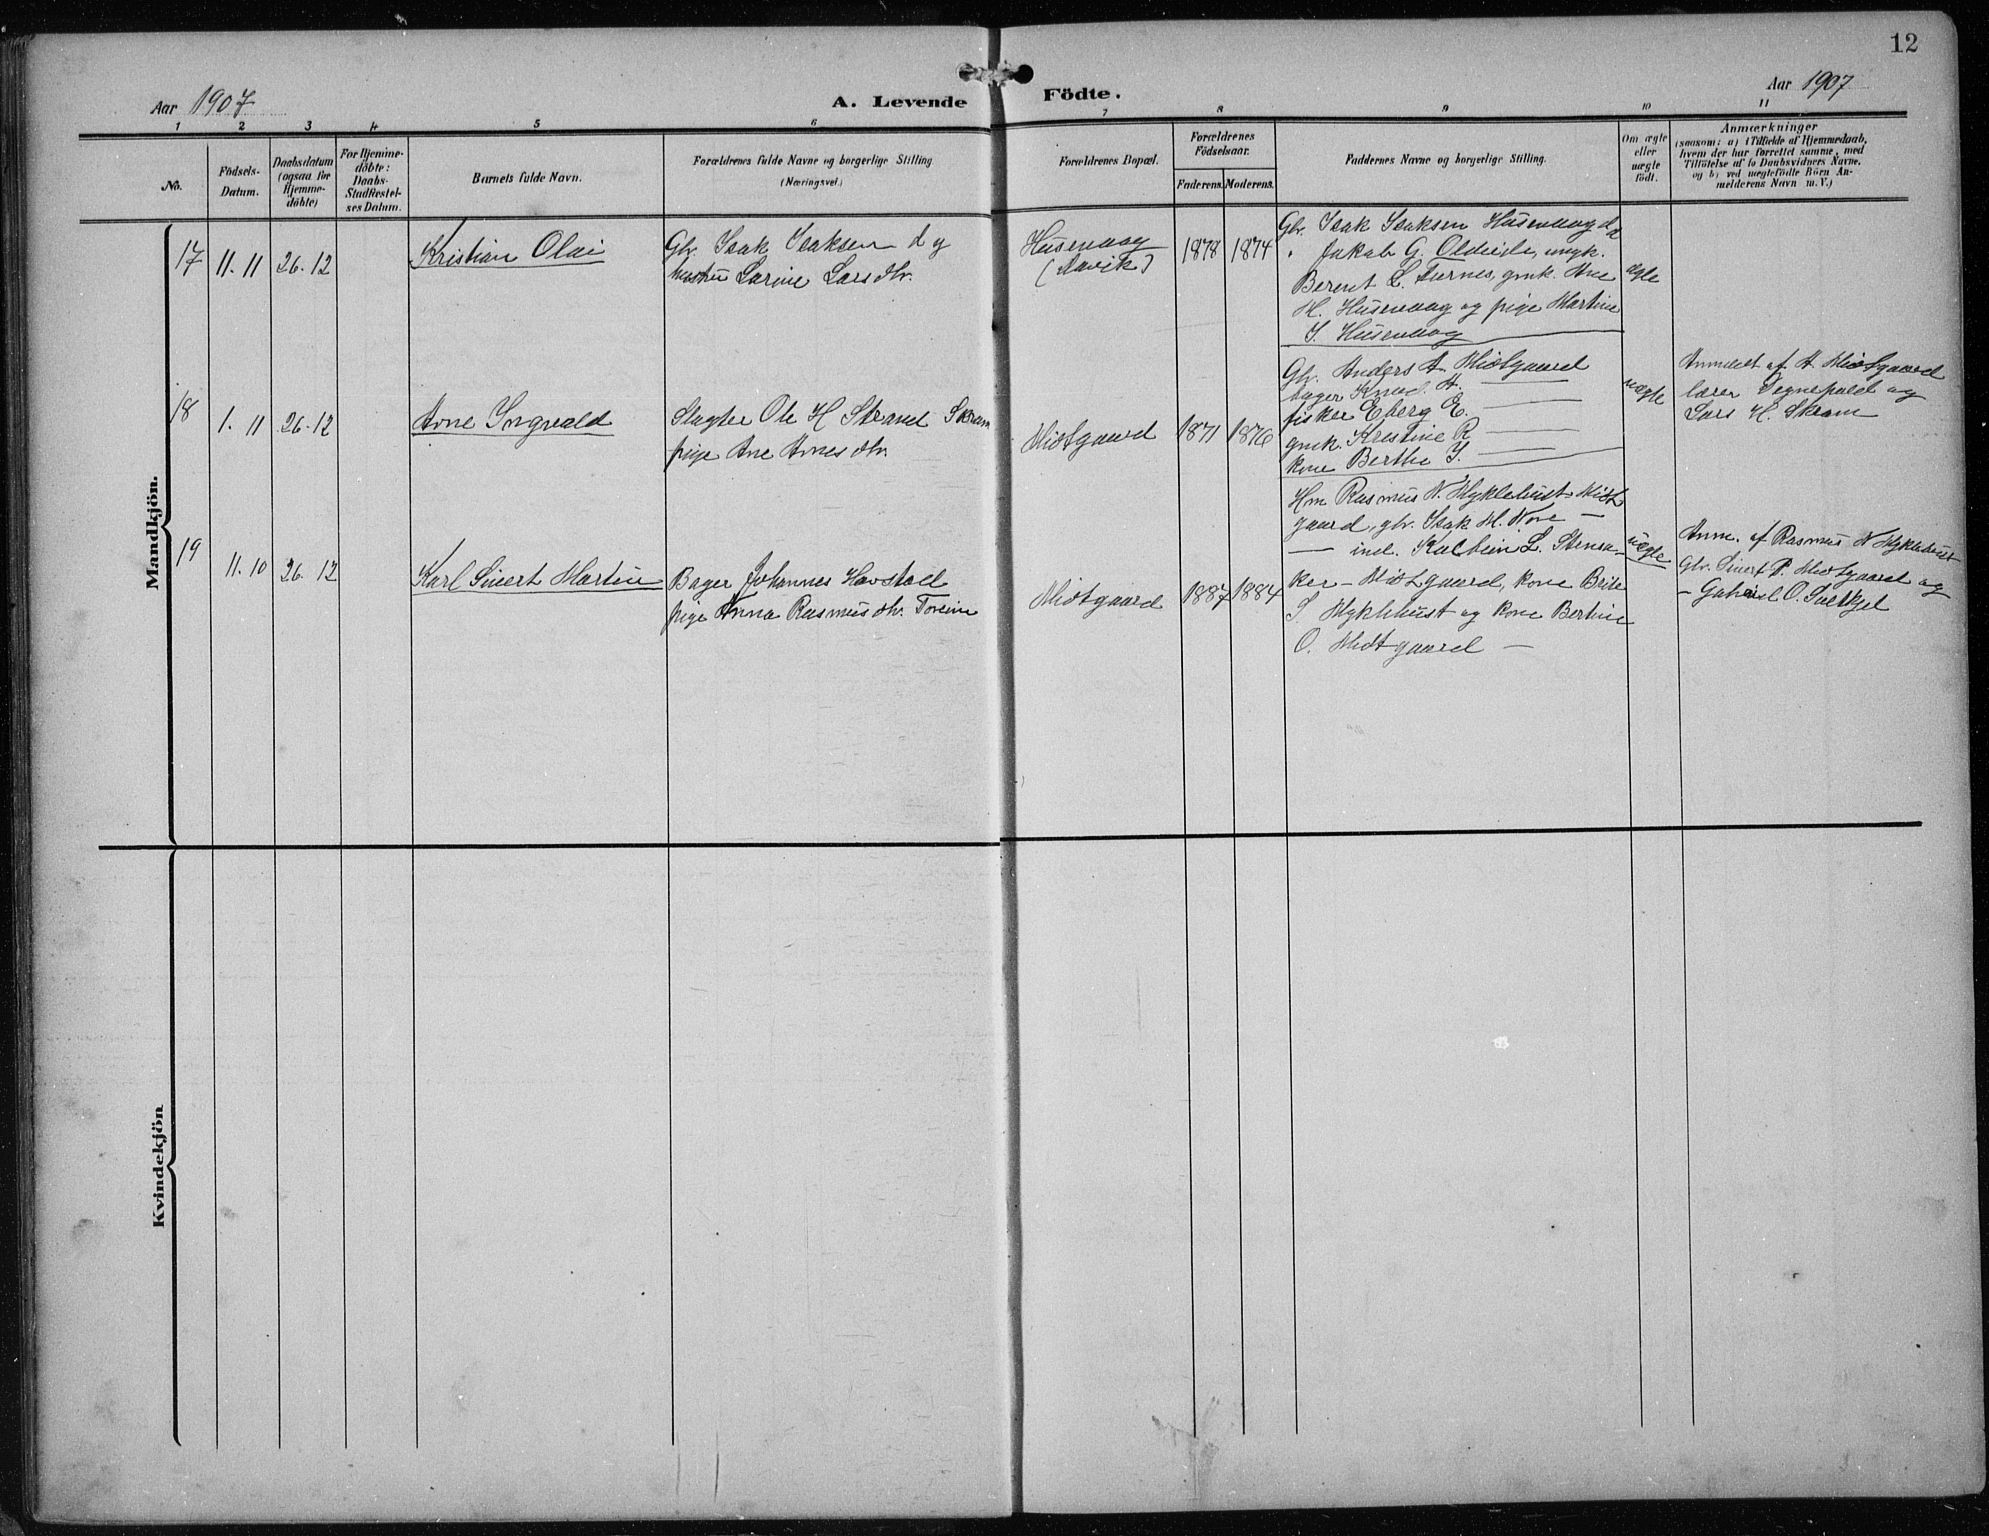 12
Aar 1907
A. Levende Födte.
Aar 1907
1 2 3 4 5 6 7 8 9 10 11
No.
Födsels-
Datum.
Daabsdatum
(ogsaa for
Hjemme-
döbte)
For Hjemme-
döbte:
Daabs-
Stadfæstel-
ses Datum.
Barnets fulde Navn.
Forældrenes fulde Navne og borgerlige Stilling
(Næringsvei.)
Forældrenes Bopæl.
Forældrenes
Födselsaar.
Faderens. Moderens.
Faddernes Navne og borgerlige Stilling.
Om ægte
eller
uægte
födt.
Anmærkninger
(saasom: a) i Tilfælde af Hjemmedaab,
hvem der har forrettet samme, med
Tilföielse af to Daabsvidners Navne.
og b) ved uægtefödte Börn An-
melderens Navn m. V.)
Mandkjön.
17
11.11
26.12
Kristian Olai
Gbr. Isak Isaksen og
hustru Larine Larsdtr.
Husevaag
(Aavik)
1878
1874
Gbr. Isak Isaksen Husevaag
" Jakob G. Oldeide, ungk.
Berent L. Furnes, gmk. Ane
M. Husevaag og pige Martine
I. Husevaag
ægte
18
1.11
26.12
Arne Ingvald
Slagter Ole H Strand Skram
pige Ane Arnesdtr.
Midtgaard
1871
1876
Gbr. Anders A Midtgaard
bager Knud A. —
fisker Eberg E. —
gmk. Kristine R —
kone Berthe I. —
uægte
Anmeldt af A Midtgaard
lærer Vegnepold og
Lars H. Skram
19
11.10
26.12
Karl Sivert Martin
Bager Johannes Havstad
pige Anna Rasmusdtr.
Midtgaard
1887
1884
Hm Rasmus N. Myklebust Midt
gaard, gbr. Isak M. Nore —
— ind. Kolbein L. Stensa-
ker — Midtgaard, kone Brite
S. Myklebust og kone Bertine
O. Midtgaard —
uægte
Anm. af Rasmus N Myklebust
Gbr. Sivert P. Midtgaard og
— Gabriel O.
Kvindekjön.